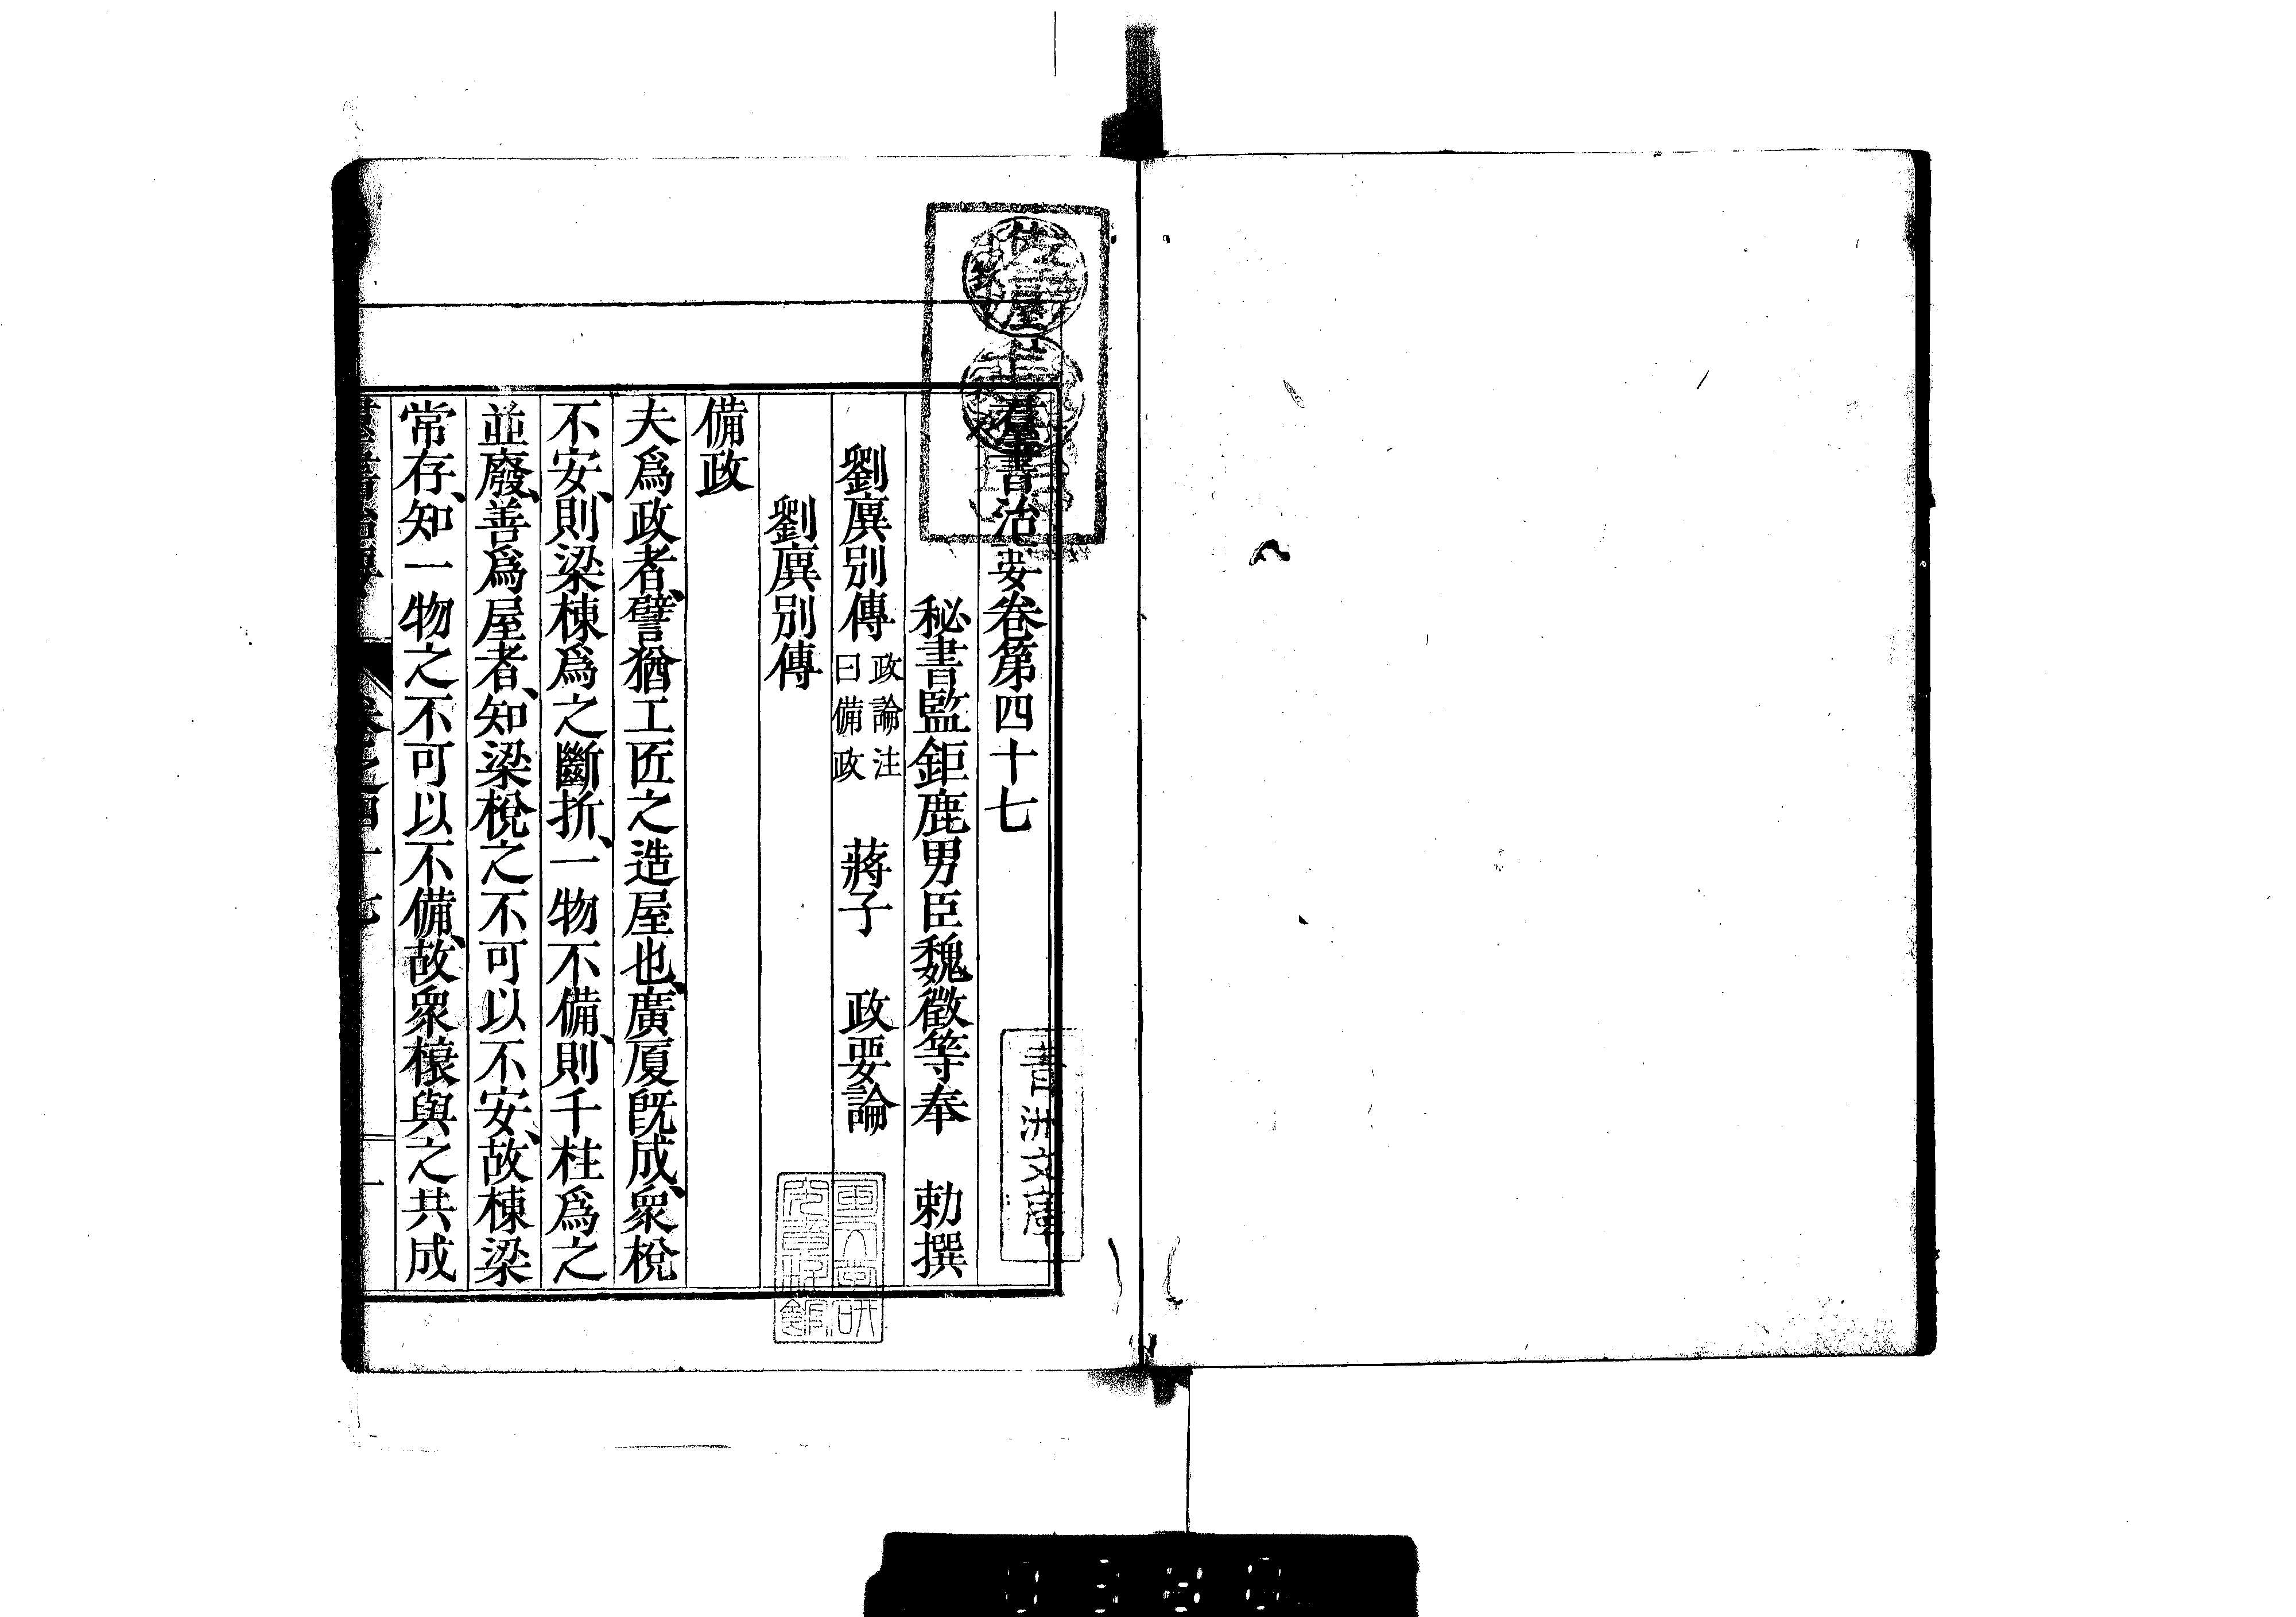 羣書治要卷第四十七
秘書監鉅鹿男臣魏徵等奉　勅撰
劉廙別傳 政論注曰備政　蔣子　政要論
劉廙別傳
備政
夫爲政者、譬猶工匠之造屋也、廣厦旣成、衆梲
不安、則梁棟爲之斷折、一物不備、則千柱爲之
並廢、善爲屋者、知梁梲之不可以不安、故棟梁
常存、知一物之不可以不備、故衆榱與之共成
羣書治要　卷之四十七　一
青洲文庫